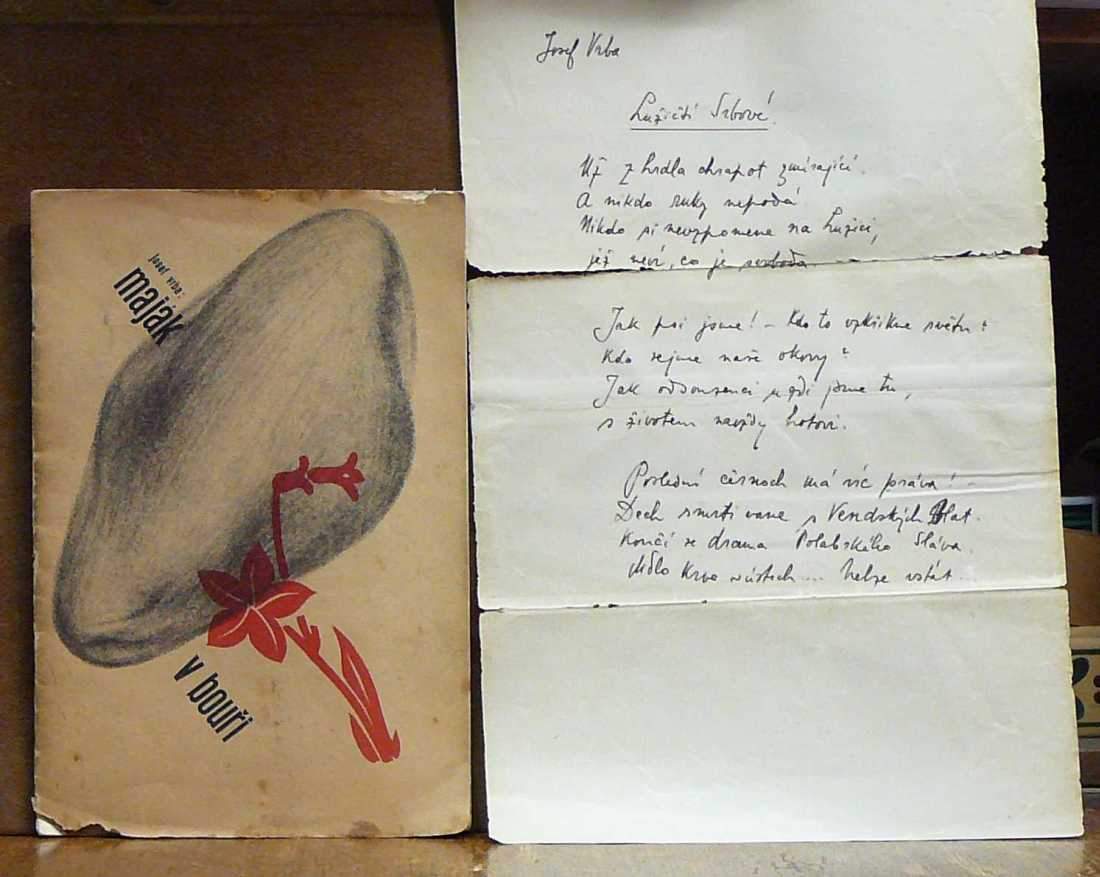 josef vrba:
maják
v bouři
Josef Vrba
Lužičtí Srbové.
Už z hrdla chrapot zmírající.
A nikdo ruky nepodá
Nikdo si nevzpomene na Lužici,
jež neví, co je svoboda.
Jak psi jsme! – Kdo to vykřikne světu?
Kdo sejme naše okovy?
Jak odsouzenci jsme tu,
s životem navždy hotovi.
Poslední černoch má víc práva! –
Dech smrti vane s Vendských Blat.
Končí se drama Polabského Sláva.
Mdlo Krve v ústech... Nelze vstát.